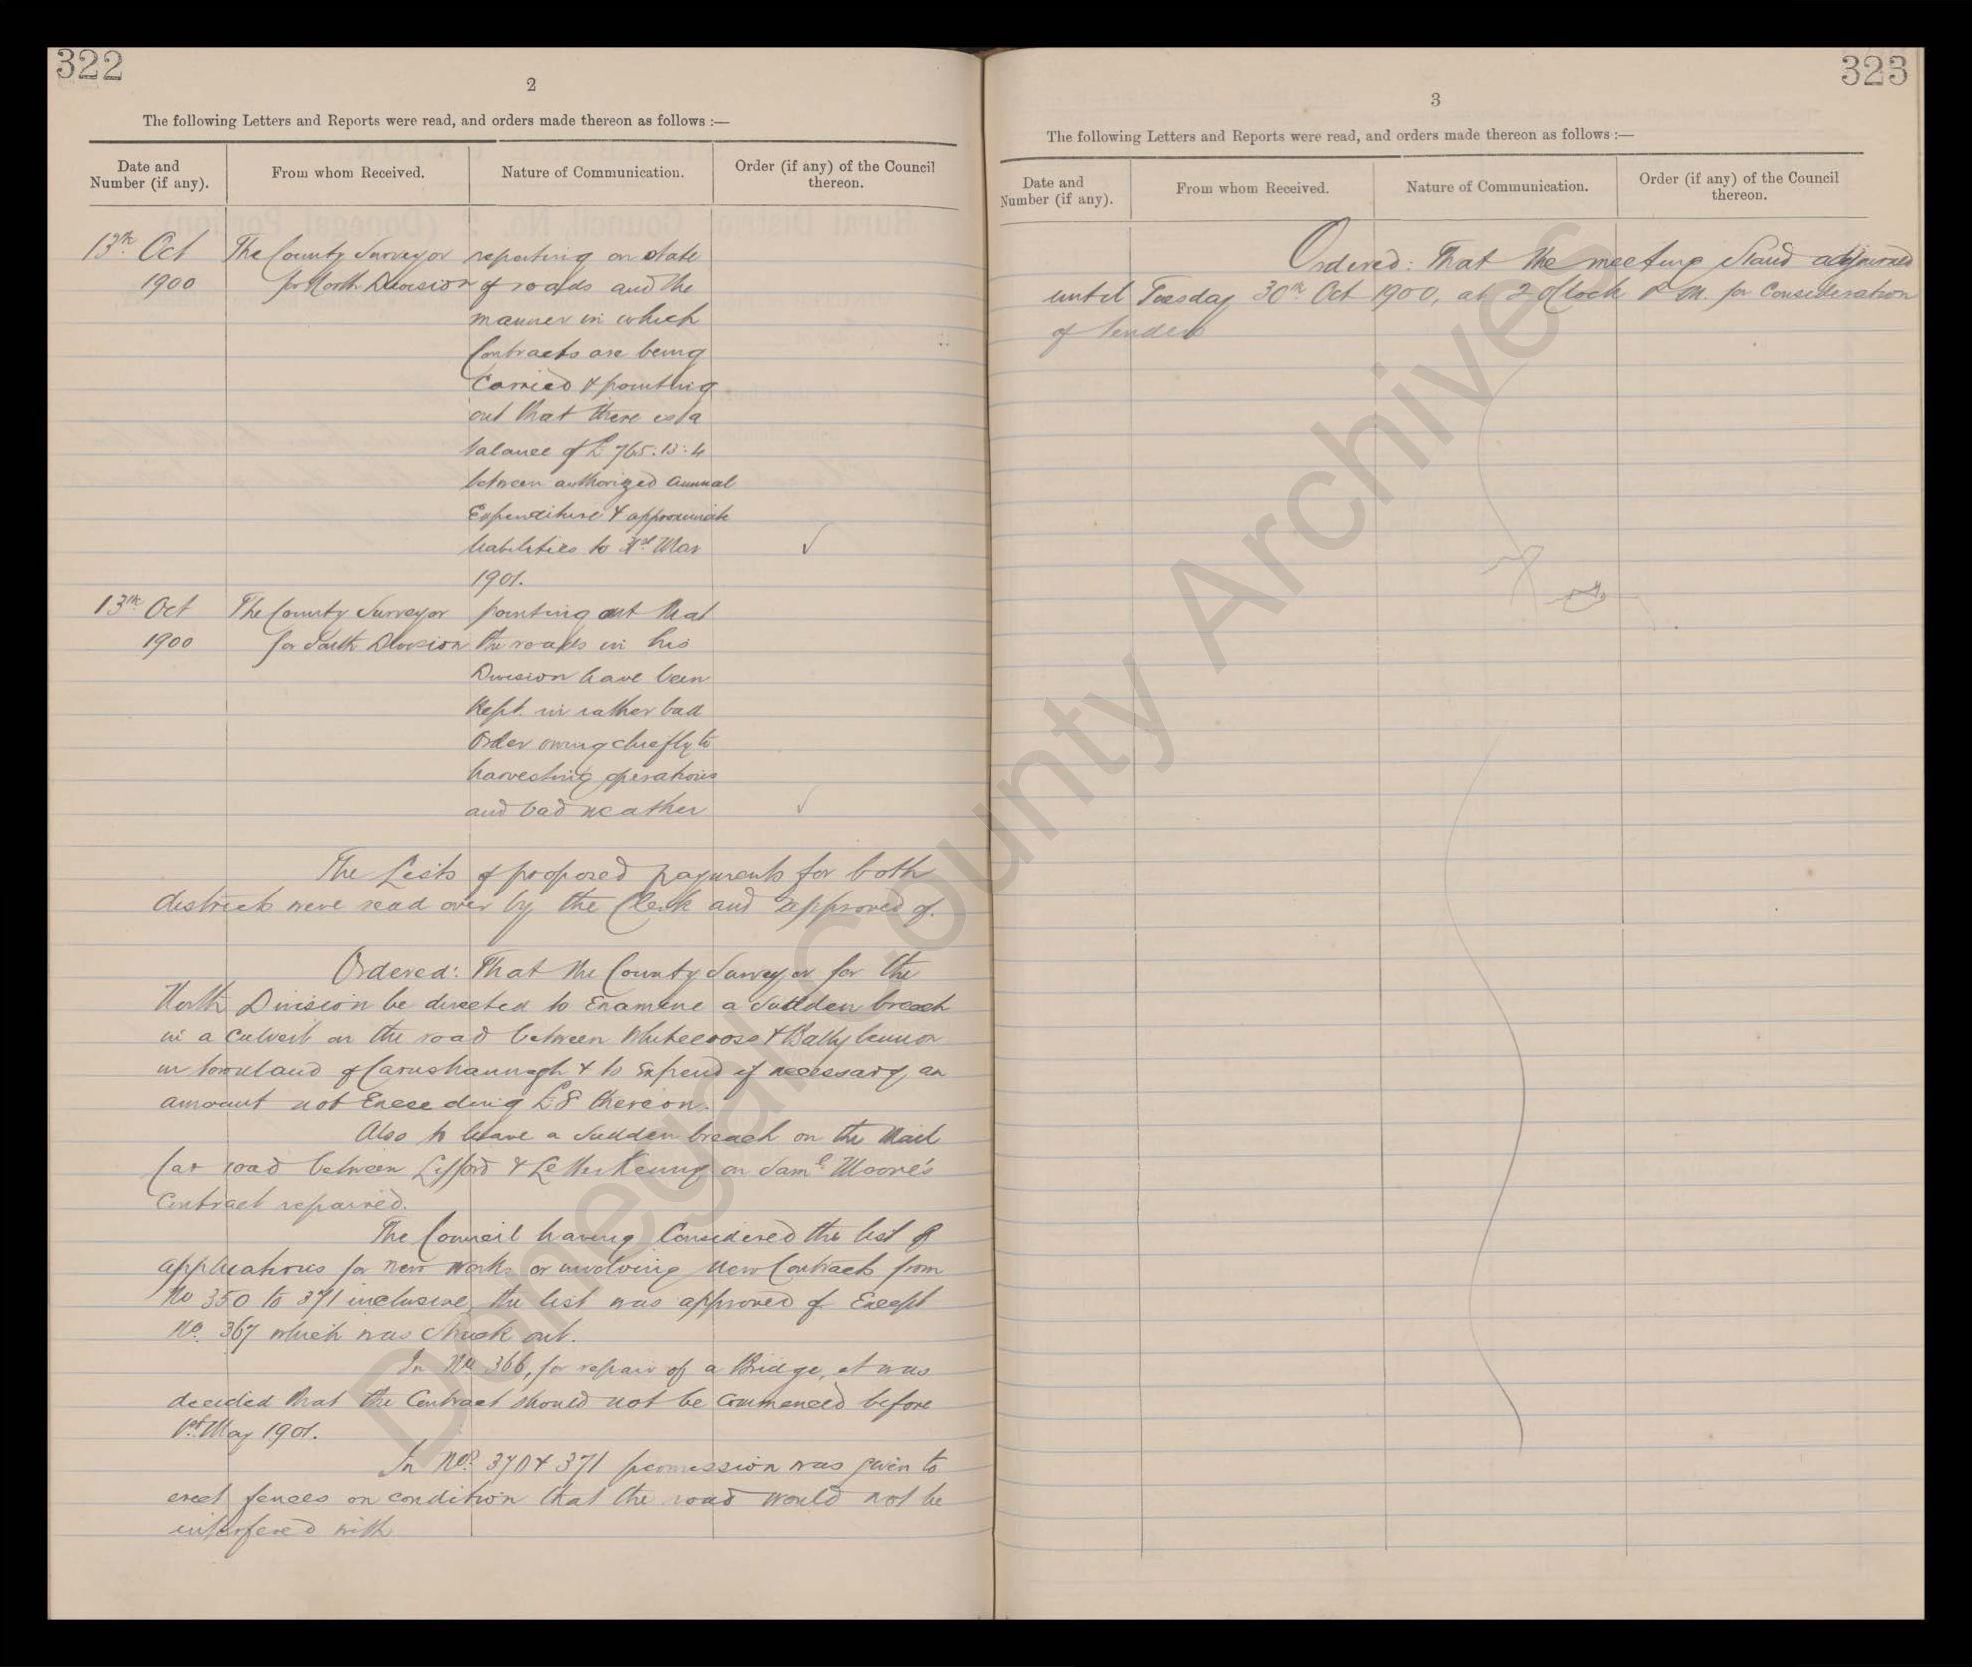 322
2
The following Letters and Reports were read, and orders made thereon as follows :—
Date and Number (if any).
From whom Received.
Nature of Communication.
Order (if any) of the Council thereon.
13th Oct The County Surveyor reporting on state
1900 for North Division of roads and the
manner in which
Contracts are being
Carried & pointing
out that there is a
balance of £765.13:4
between authorized annual
Expenditure & approximate
liabilities to 31st Mar ✓
1901.
13th Oct The County Surveyor pointing out that
1900 for South Division the roads in his
Division have been
Kept in rather bad
Order owing chiefly to
harvesting operations
and bad weather ✓
The Lists of proposed payments for both
districts were read over by the Clerk and approved of.
Ordered: That the County Surveyor for the
North Division be directed to Examine a Sudden breach
in a Culvert on the road between Whitecross &
in townland of & to Expend if necessary, an
amount not Exceeding £8 thereon.
Also to have a Sudden breach on the Mail
Car road between Lifford & Letterkenny on Saml Moore's
Contract repaired.
The Council having Considered the list of
applications for new works or involving new Contracts from
No 350 to 371 inclusive, the list was approved of Except
No. 367 which was struck out.
In No 366, for repair of a Bridge, it was
decided that the Contract should not be Commenced before
1st May 1901.
In Nos 370 & 371 permission was given to
erect fences on condition that the road would not be
interfered with
323
3
The following Letters and Reports were read, and orders made thereon as follows :—
Date and Number (if any).
From whom Received.
Nature of Communication.
Order (if any) of the Council thereon.
Ordered: That the meeting Stand adjourned
until Tuesday 30th Oct 1900, at 2 O'Clock P.M. for Consideration
of Tenders
Donegal County Archives